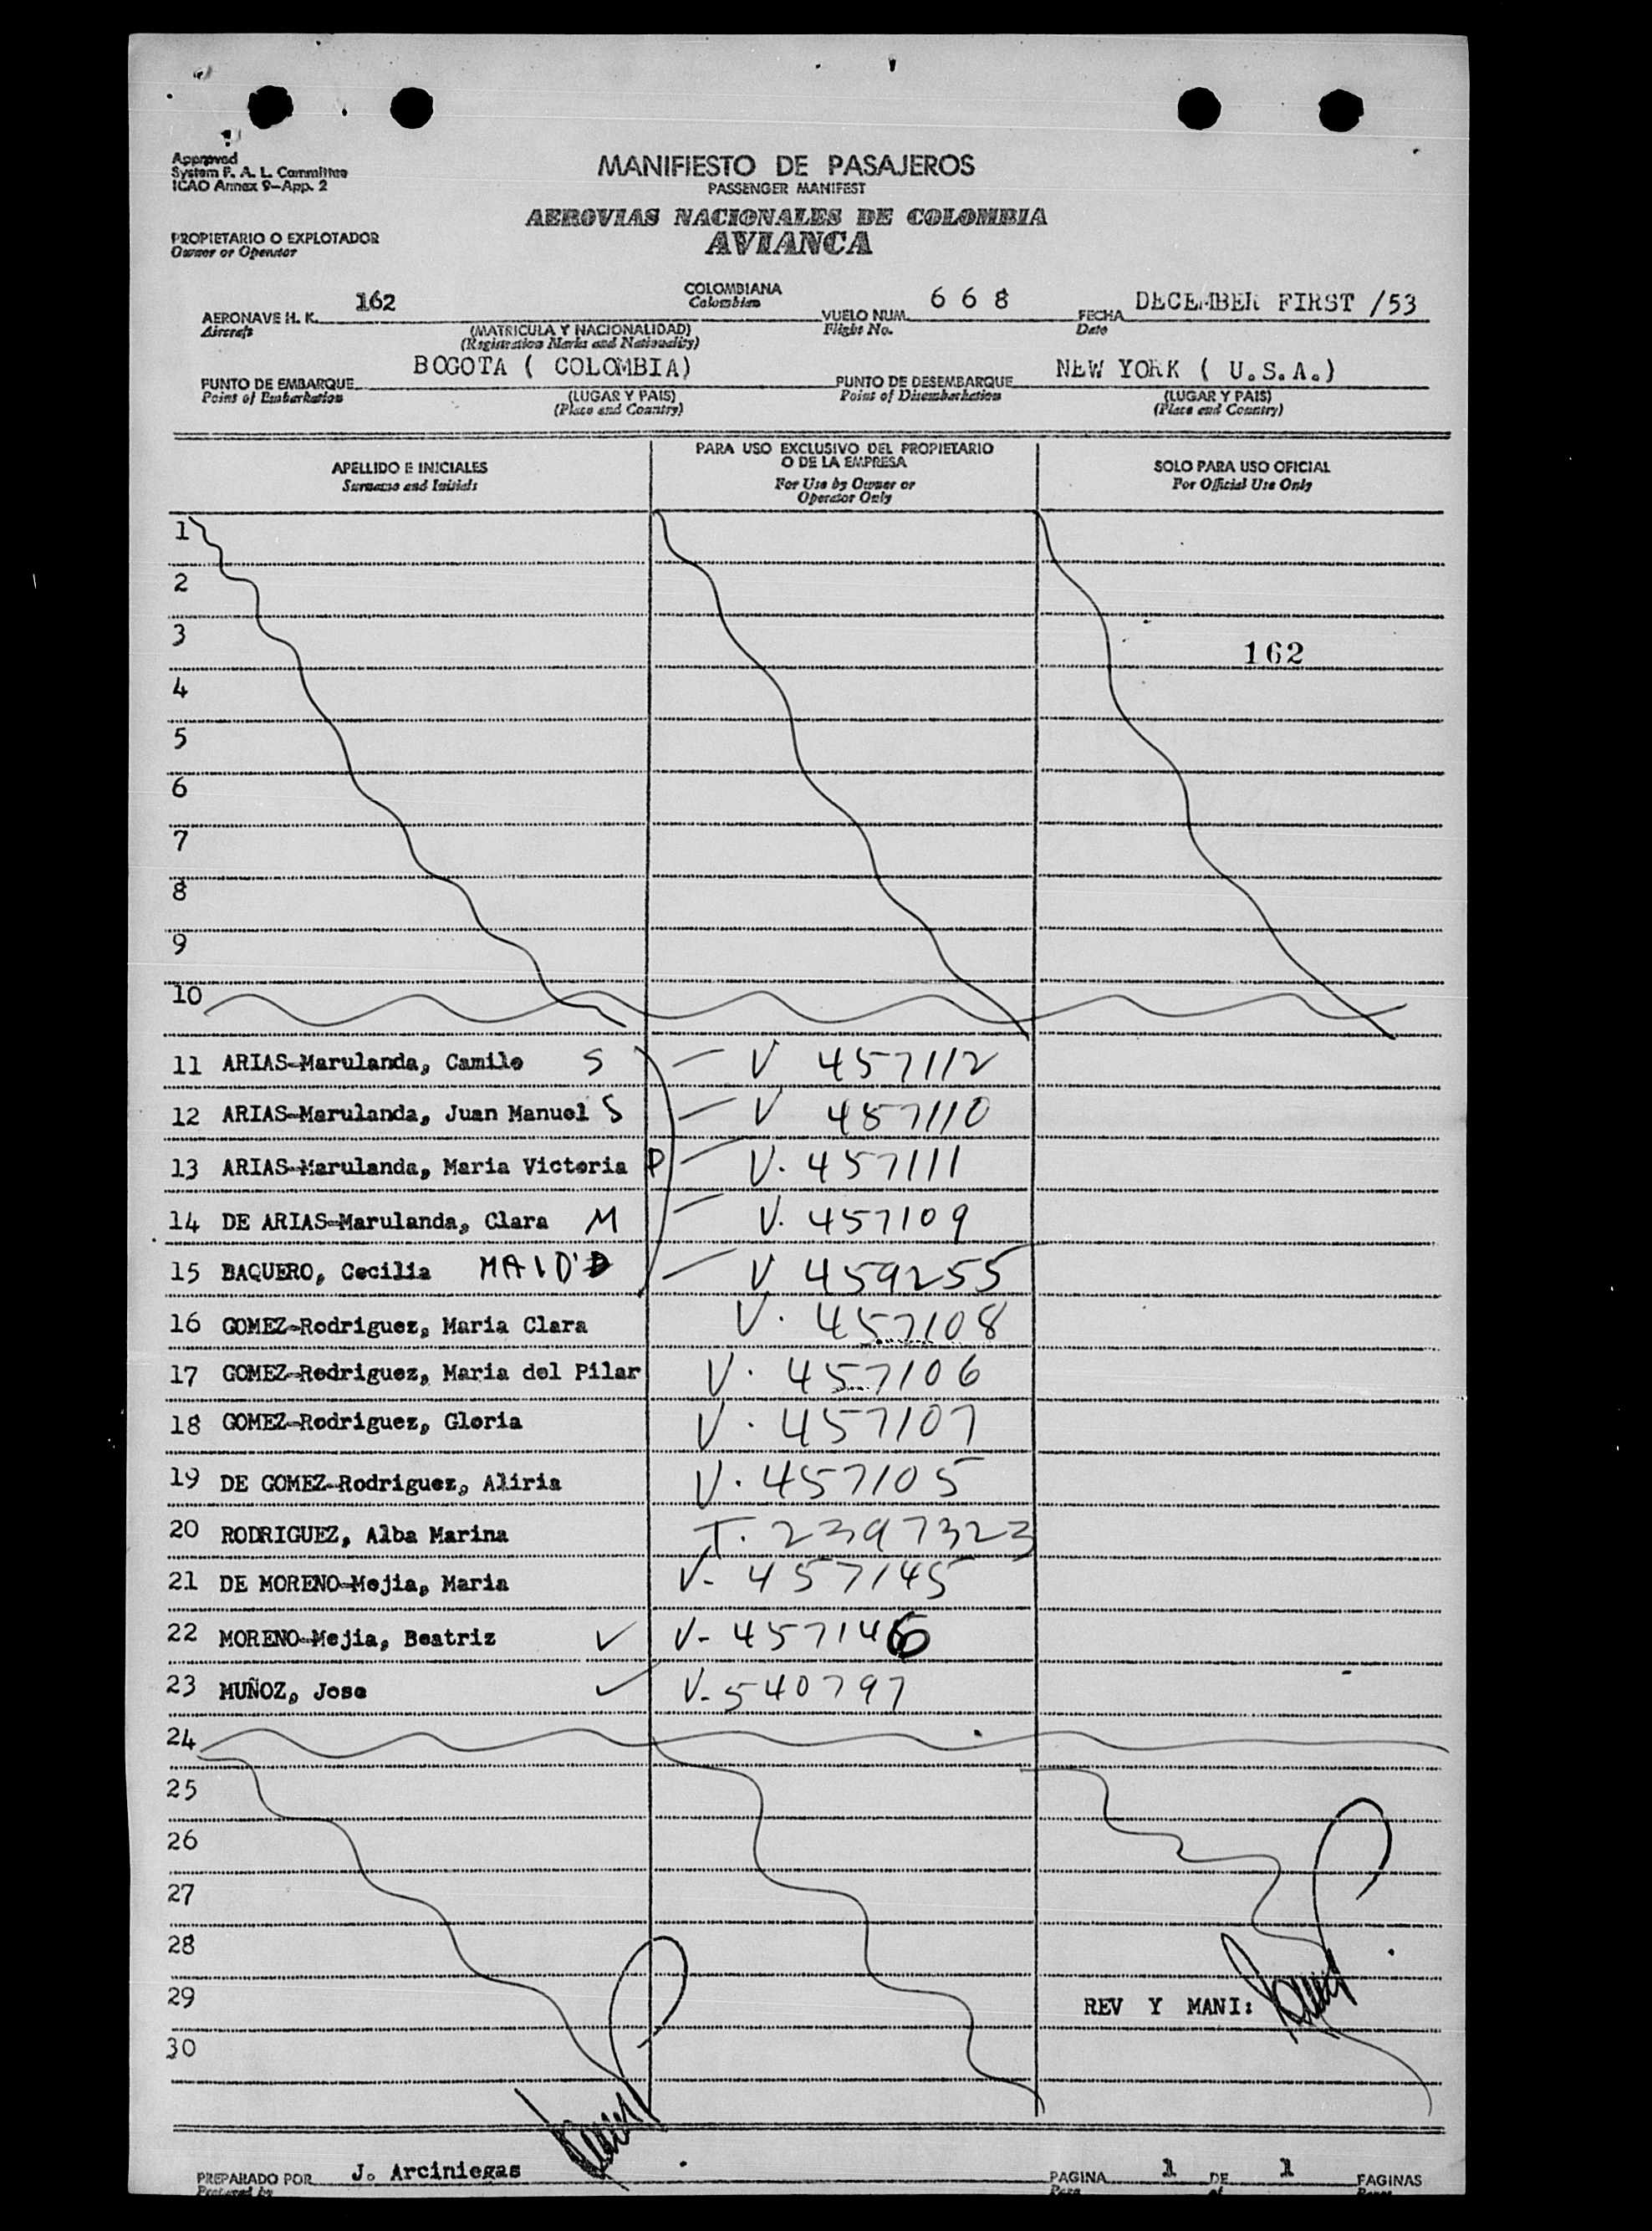 Approved
System F. A. L. Committee
ICAO Annex 9-App. 2
MANIFIESTO DE PASAJEROS
PASSENGER MANIFEST
AEROVIAS NACIONALES DE COLOMBIA
AVIANCA
PROPIETARIO O EXPLOTADOR
Owner or Operator
AERONAVE H. K. 162 COLOMBIANA VUELO NUM. 6 6 8 FECHA DECEMBER FIRST /53
Aircraft Colombian Flight No. Date
(MATRICULA Y NACIONALIDAD)
(Registration Marks and Nationality)
PUNTO DE EMBARQUE BOGOTA ( COLOMBIA) PUNTO DE DESEMBARQUE NEW YORK ( U.S.A.)
Point of Embarkation (LUGAR Y PAIS) Point of Disembarkation (LUGAR Y PAIS)
(Place and Country) (Place and Country)
APELLIDO E INICIALES
Surname and Initials
PARA USO EXCLUSIVO DEL PROPIETARIO
O DE LA EMPRESA
For Use by Owner or
Operator Only
SOLO PARA USO OFICIAL
For Official Use Only
1
2
3 162
4
5
6
7
8
9
10
11 ARIAS-Marulanda, Camilo S V 457112
12 ARIAS-Marulanda, Juan Manuel S V 457110
13 ARIAS-Marulanda, Maria Victoria D V. 457111
14 DE ARIAS-Marulanda, Clara M V. 457109
15 BAQUERO, Cecilia MAID V 459255
16 GOMEZ-Rodriguez, Maria Clara V. 457108
17 GOMEZ-Rodriguez, Maria del Pilar V. 457106
18 GOMEZ-Rodriguez, Gloria V. 457107
19 DE GOMEZ-Rodriguez, Aliria V. 457105
20 RODRIGUEZ, Alba Marina T. 2397323
21 DE MORENO-Mejia, Maria V- 457145
22 MORENO-Mejia, Beatriz ✓ V- 457146
23 MUÑOZ, Jose ✓ V- 540797
24
25
26
27
28
29 REV Y MANI:
30
PREPARADO POR J. Arciniegas PAGINA 1 DE 1 PAGINAS
Prepared by of